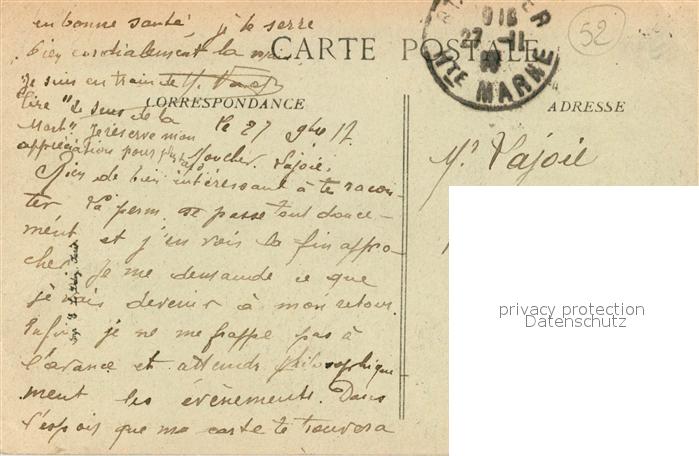 en bonne santé je te serre
bien cordialement la main
CARTE POSTALE
Je suis en train de
lire "Le sens de la
Mort". Je réserve mon
appréciation pour plus tard
CORRESPONDANCE
ADRESSE
52
27 -11
HTE MARNE
Le 27 9bre 17
Mon cher Lajoie,
Rien de bien intéressant à te racon-
ter. La perm. se passe tout douce-
ment et j'en vois la fin appro-
cher. Je me demande ce que
je vais devenir à mon retour.
Enfin je ne me frappe pas à
l'avance et attends philosophique
ment les évènements. Dans
l'espoir que ma carte te trouvera
Mr Lajoie
privacy protection
Datenschutz